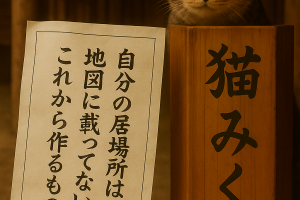 自分の居場所は
地図に載ってない
これから作るもの
猫みく